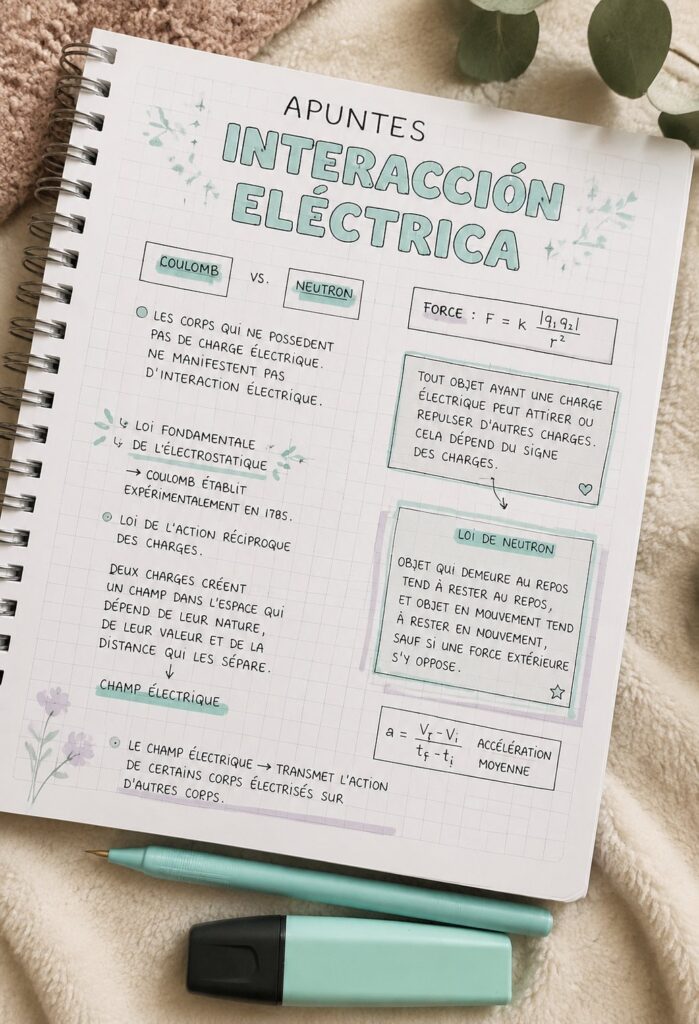 APUNTES
INTERACCIÓN
ELÉCTRICA
COULOMB VS. NEUTRON
LES CORPS QUI NE POSSEDENT
PAS DE CHARGE ÉLECTRIQUE.
NE MANIFESTENT PAS
D'INTERACTION ÉLECTRIQUE.
↳ LOI FONDAMENTALE
↳ DE L'ÉLECTROSTATIQUE
→ COULOMB ÉTABLIT
EXPÉRIMENTALEMENT EN 1785.
LOI DE L'ACTION RÉCIPROQUE
DES CHARGES.
DEUX CHARGES CRÉENT
UN CHAMP DANS L'ESPACE QUI
DÉPEND DE LEUR NATURE,
DE LEUR VALEUR ET DE LA
DISTANCE QUI LES SÉPARE.
↓
CHAMP ÉLECTRIQUE
LE CHAMP ÉLECTRIQUE → TRANSMET L'ACTION
DE CERTAINS CORPS ÉLECTRISÉS SUR
D'AUTRES CORPS.
FORCE : F = K |q₁q₂| / r²
TOUT OBJET AYANT UNE CHARGE
ÉLECTRIQUE PEUT ATTIRER OU
REPULSER D'AUTRES CHARGES.
CELA DÉPEND DU SIGNE
DES CHARGES.
LOI DE NEUTRON
OBJET QUI DEMEURE AU REPOS
TEND À RESTER AU REPOS,
ET OBJET EN MOUVEMENT TEND
À RESTER EN NOUVEMENT,
SAUF SI UNE FORCE EXTÉRIEURE
S'Y OPPOSE.
a = (V_f - V_i) / (t_f - t_i) ACCÉLÉRATION
MOYENNE